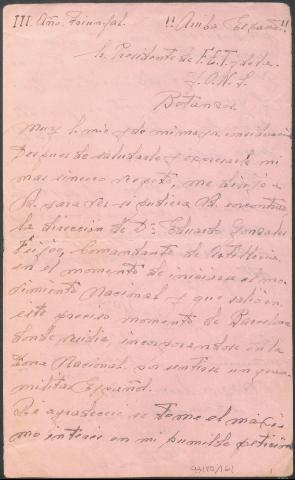 III. Año Triunfal. !!Arriba España!!
Sr. Presidente de F.E.T. y de la
J.O.N.S.
Betanzos.
Muy Sr. mio y de mi mayor consideración
Despues de saludarle y expresarle mi
mas sincero respeto, me dirijo a
Vd. para ver si pudiera Vd. encontrar
la dirección de Dn. Eduardo Gonzalez
Feijoo, Comandante de Artilleria
en el momento de iniciarse el mo-
vimiento Nacional y que salio en
este preciso momento de Barcelona
donde residia, incorporandose en la
Zona Nacional por sentirse un gran
militar Español.
Le agradeceré se tome el maxi-
mo interés en mi humilde petición
93180/161